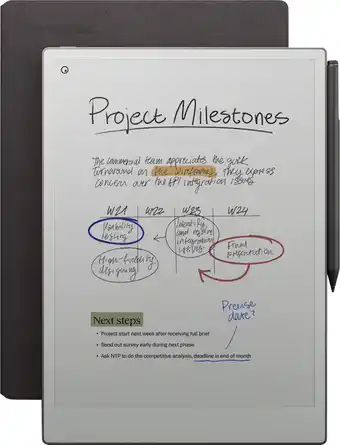 Project Milestones
The commercial team appreciates the quick
turnaround on the wireframes. They express
concern over the API integration issues
W21 W22 W23 W24
Usability
testing
Identify
and resolve
integration
issues
Final
presentation
High-fidelity
designing
Precise
date?
Next steps
• Project start next week after receiving full brief
• Send out survey early during next phase
• Ask NTP to do the competitive analysis, deadline is end of month